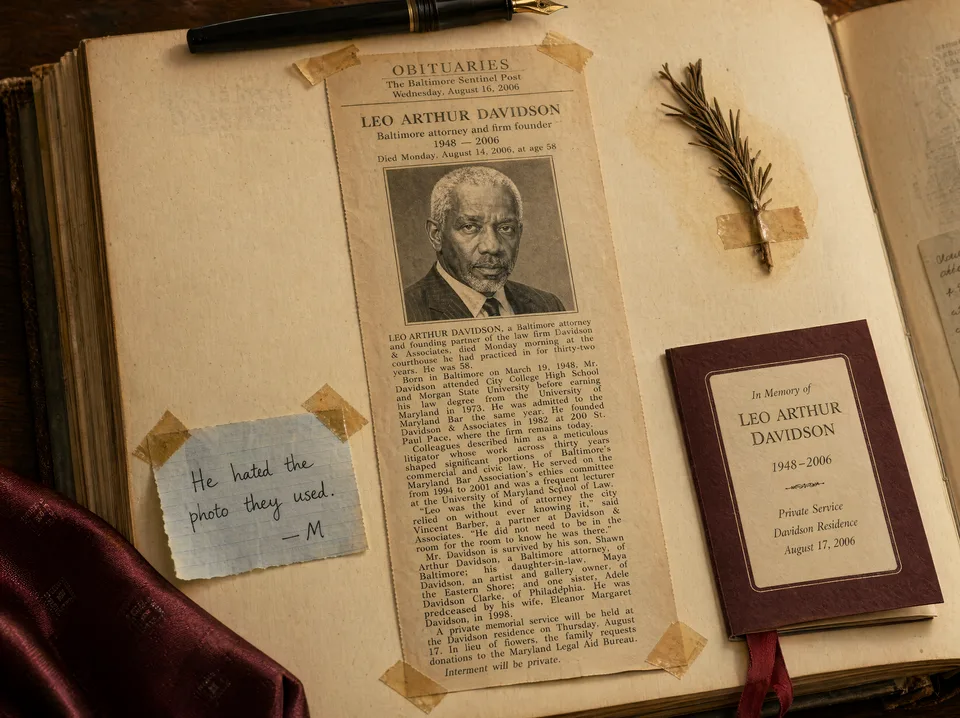 OBITUARIES
The Baltimore Sentinel Post
Wednesday, August 16, 2006
LEO ARTHUR DAVIDSON
Baltimore attorney and firm founder
1948 — 2006
Died Monday, August 14, 2006, at age 58
LEO ARTHUR DAVIDSON, a Baltimore attorney
and founding partner of the law firm Davidson
& Associates, died Monday morning at the
courthouse he had practiced in for thirty-two
years. He was 58.
Born in Baltimore on March 19, 1948, Mr.
Davidson attended City College High School
and Morgan State University before earning
his law degree from the University of
Maryland in 1973. He was admitted to the
Maryland Bar the same year. He founded
Davidson & Associates in 1982 at 200 St.
Paul Pace, where the firm remains today.
Colleagues described him as a meticulous
litigator whose work across thirty years
shaped significant portions of Baltimore's
commercial and civic law. He served on the
Maryland Bar Association's ethics committee
from 1994 to 2001 and was a frequent lecturer
at the University of Maryland School of Law.
"Leo was the kind of attorney the city
relied on without ever knowing it," said
Vincent Barber, a partner at Davidson &
Associates. "He did not need to be in the
room for the room to know he was there."
Mr. Davidson is survived by his son, Shawn
Arthur Davidson, a Baltimore attorney, of
Baltimore; his daughter-in-law, Maya
Davidson, an artist and gallery owner, of
the Eastern Shore; and one sister, Adele
Davidson Clarke, of Philadelphia. He was
predceased by his wife, Eleanor Margaret
Davidson, in 1998.
A private memorial service will be held at
the Davidson residence on Thursday, August
17. In lieu of flowers, the family requests
donations to the Maryland Legal Aid Bureau.
Interment will be private.
He hated the
photo they used.
— M
In Memory of
LEO ARTHUR
DAVIDSON
1948–2006
Private Service
Davidson Residence
August 17, 2006